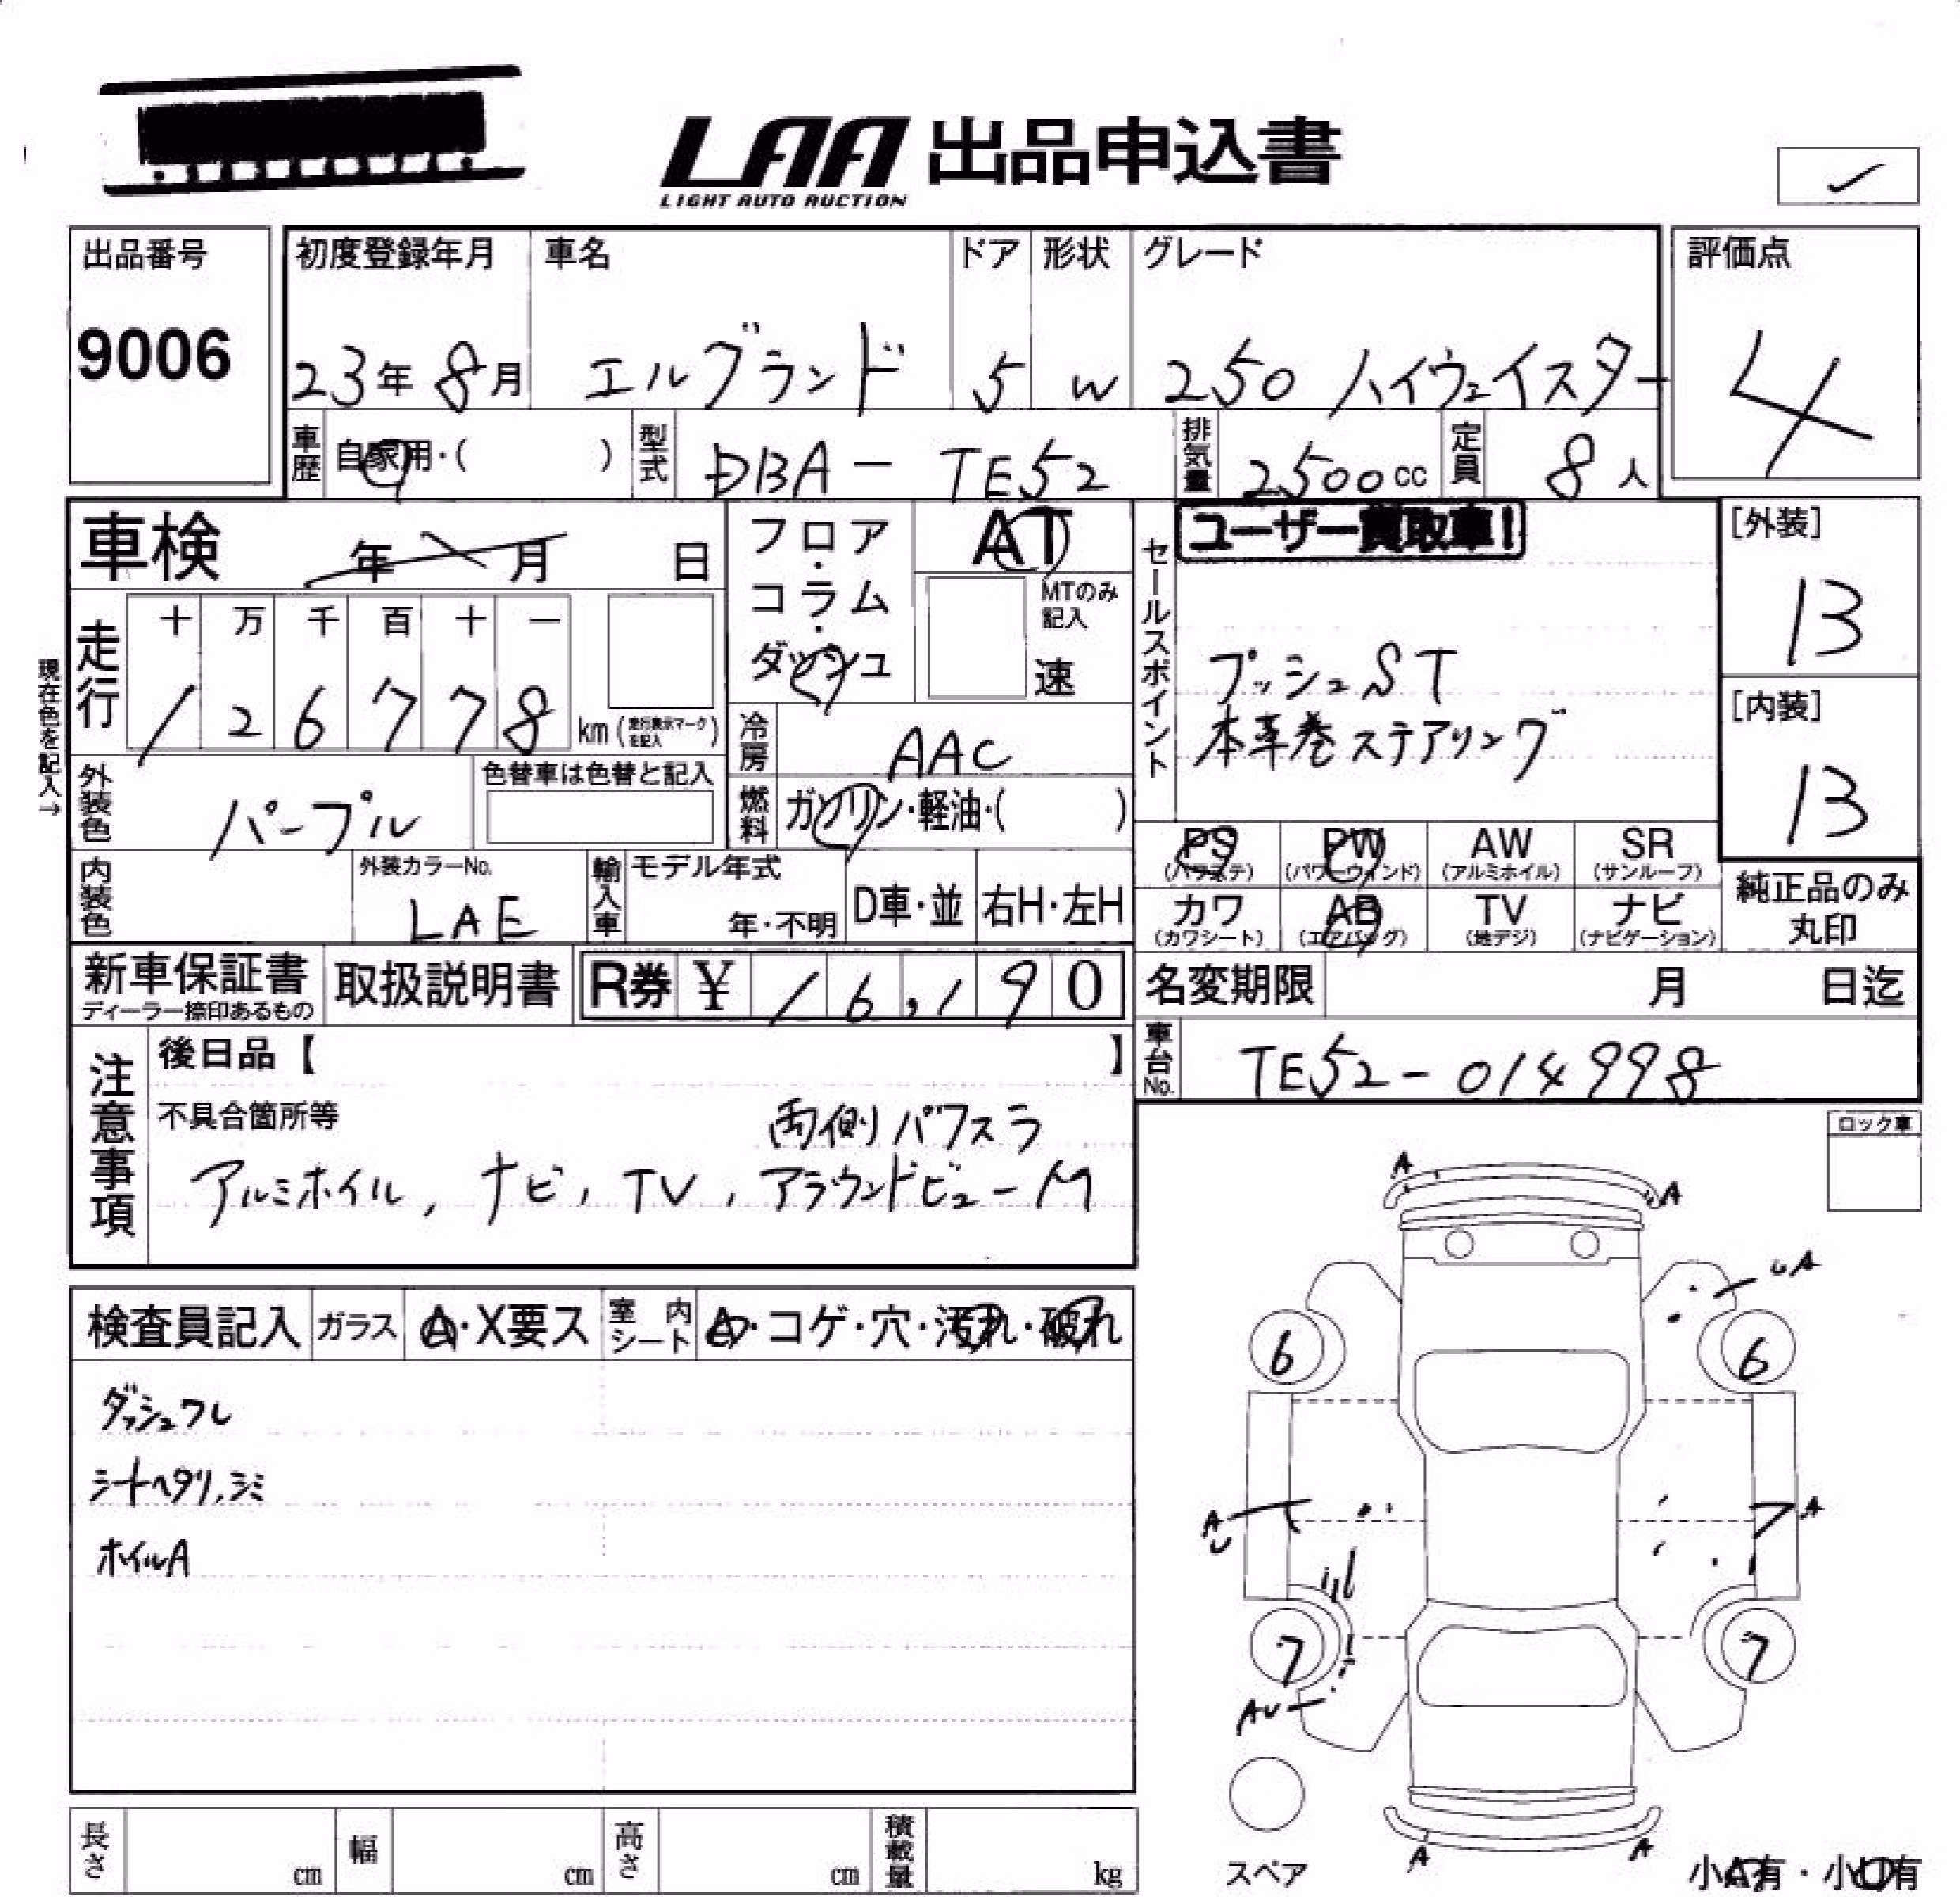 LAA 出品申込書
LIGHT AUTO AUCTION
出品番号
9006
初度登録年月 車名 ドア 形状 グレード
23年 8月 エルグランド 5 W 250 ハイウェイスター
評価点
4
車歴 自家用・( ) 型式 DBA - TE52 排気量 2500cc 定員 8人
車検 年 月 日
フロア・コラム・ダッシュ
AT
MTのみ記入
速
セールスポイント
ユーザー買取車!
プッシュST
本革巻ステアリング
[外装]
13
[内装]
13
現在色を記入→
走行 十 万 千 百 十 一
1 2 6 7 7 8 km (走行表示マークを記入)
冷房 AAC
外装色 パープル
色替車は色替と記入
燃料 ガソリン・軽油・( )
PS (パワステ) PW (パワーウィンド) AW (アルミホイル) SR (サンルーフ)
カワ (カワシート) AB (エアバッグ) TV (地デジ) ナビ (ナビゲーション)
純正品のみ
丸印
内装色
外装カラーNo.
LAE
輸入車 モデル年式
年・不明
D車・並 右H・左H
新車保証書
ディーラー捺印あるもの
取扱説明書
R券 ¥ 16,190
名変期限 月 日迄
車台No. TE52-014998
注意事項
後日品【 】
不具合箇所等
両側パワスラ
アルミホイル, ナビ, TV, アラウンドビューM
ロック車
検査員記入 ガラス A・X要ス 室内シート A・コゲ・穴・汚れ・破れ
ダッシュワレ
シートヘタリ,シミ
ホイルA
A
A
UA
6
6
A
U
A
7
7
AU
A
A
スペア
小A有・小U有
長さ cm 幅 cm 高さ cm 積載量 kg